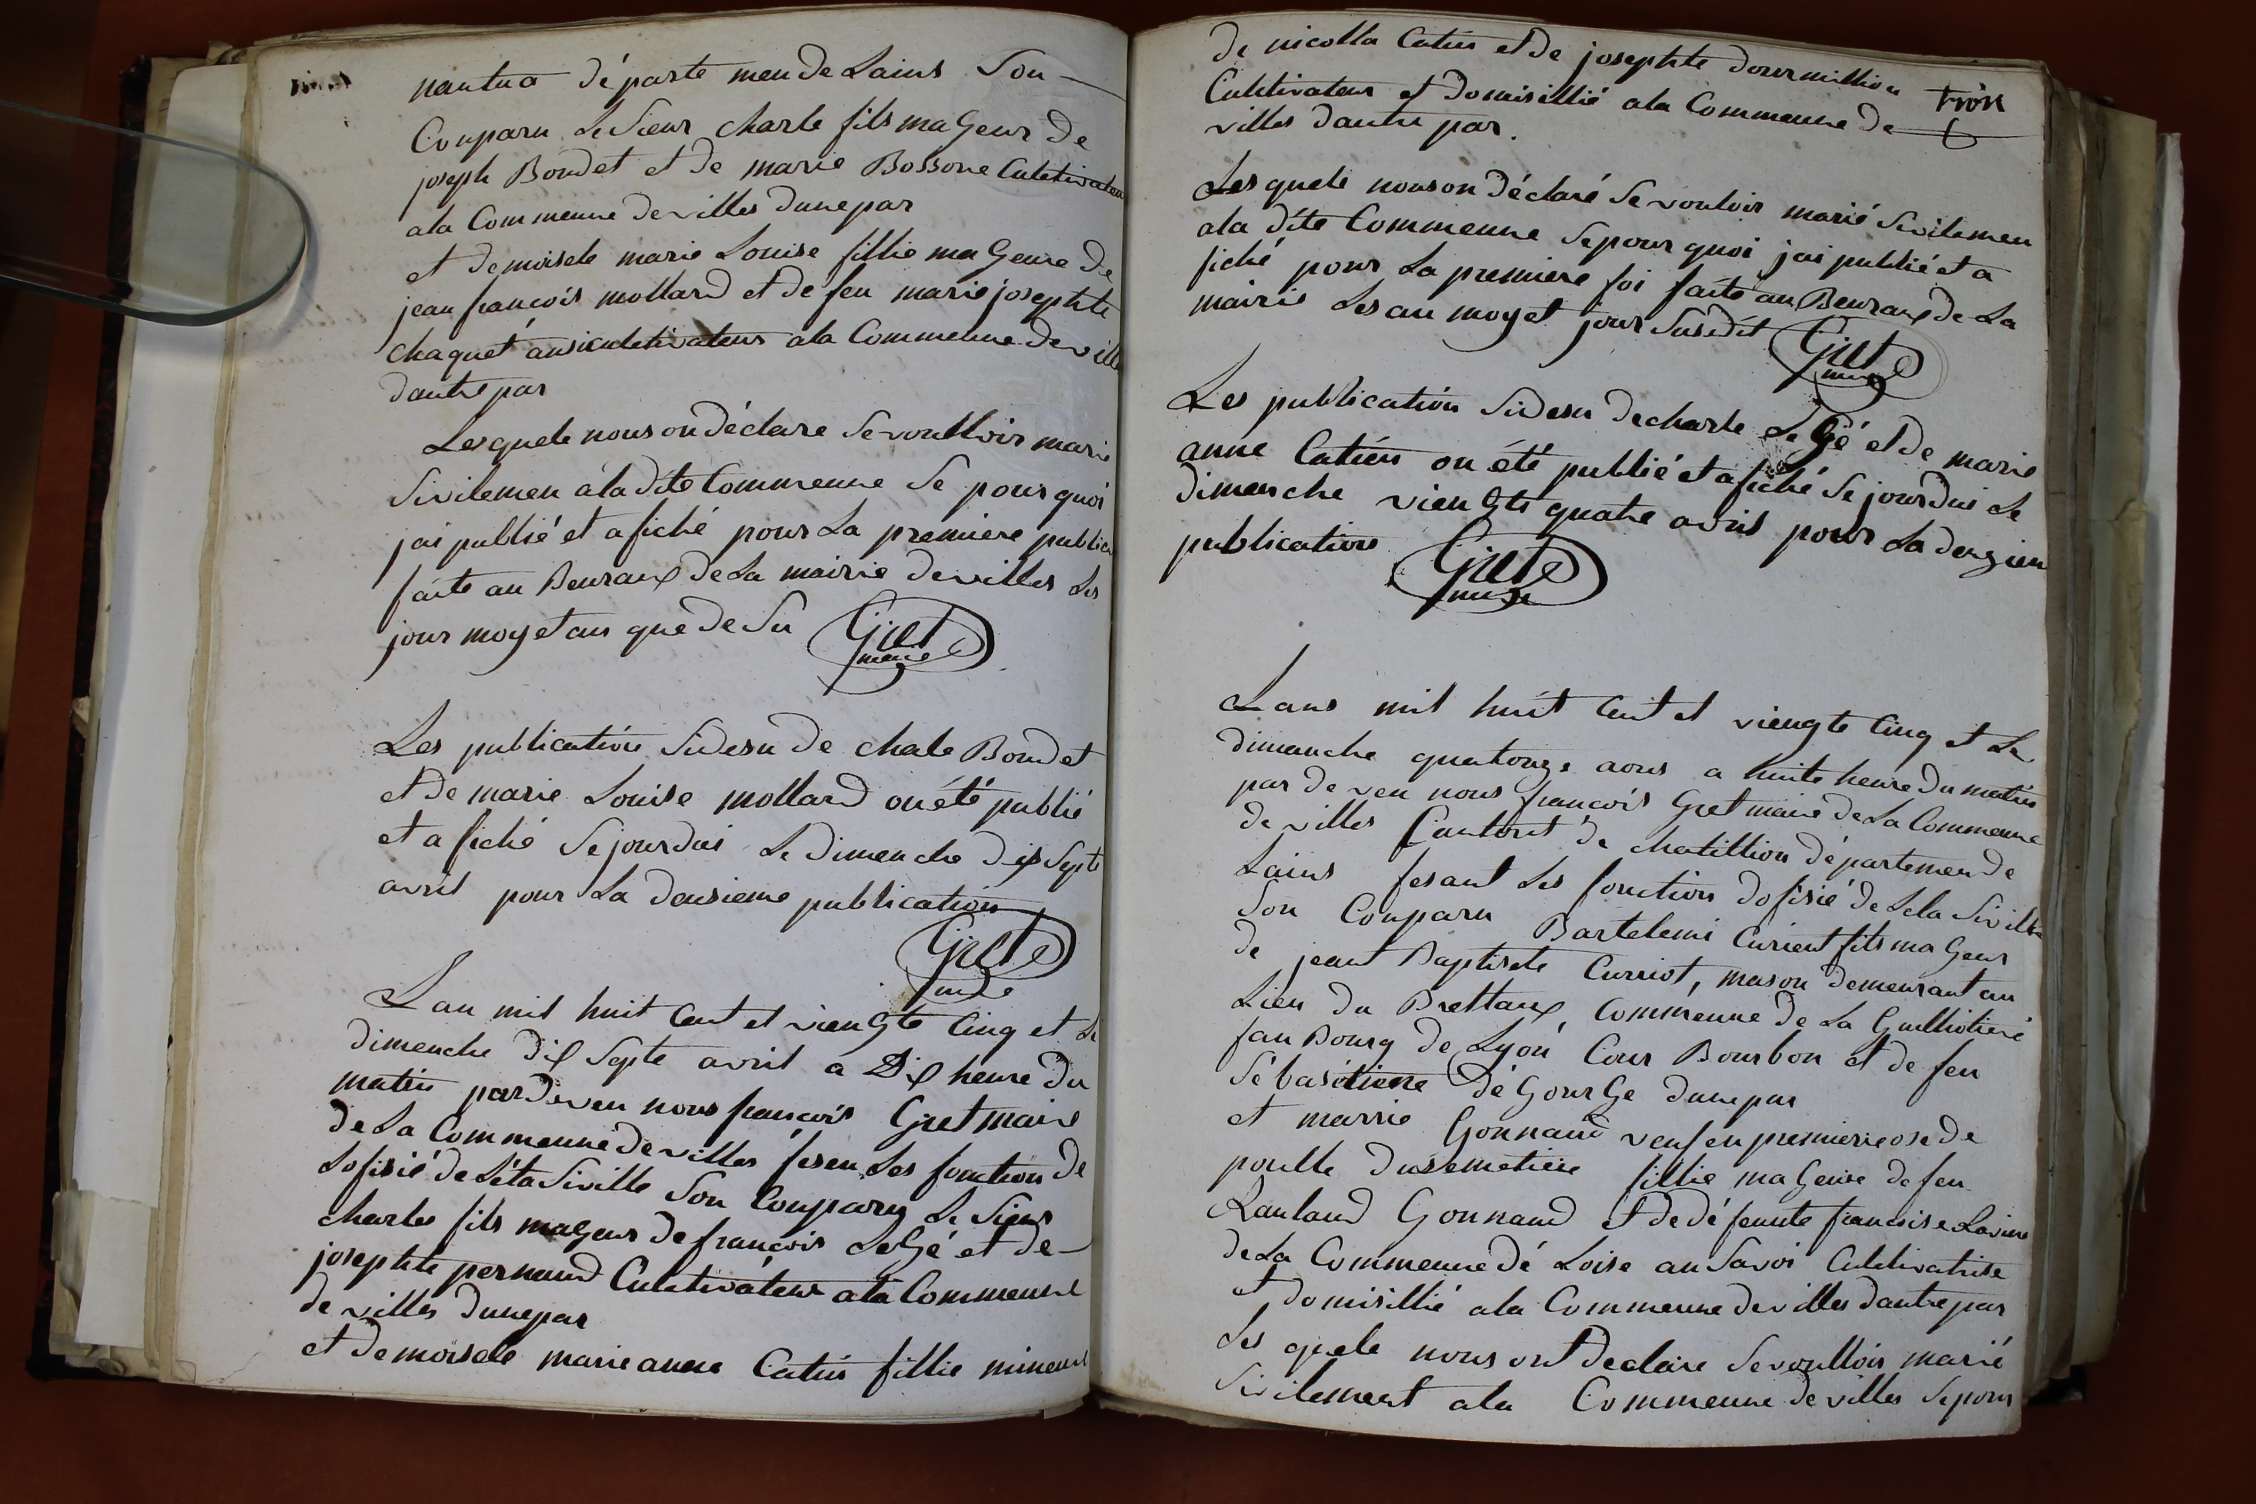 nantua départe men de Lains Son
Conparu Le Sieur charle fils ma Geur de
joseph Boudet et de marie Bossone Culetivateur
ala Commeune de villes dune par
et demoisele marie Louise fillie ma Geure de
jean francois mollard et de feu marie josephte
chaquet ausiculetivateur ala Commeune de ville
dautre par
Lesquele nous on déclare Sevoulloir marié
Sivilemen à la dite Commeune Se pourquoi
jai publié et afiché pour La premiere public
faite au Beuraux de La mairie de villes Les
jour moy et an que de Su Gret
maire
Les publication Sidesu de chale Boudet
et de marie Louise mollard on été publié
et a fiché Sejourdui Le Dimenche dix Septe
avril pour La deusieme publication
Gret
maire
Lan mil huit Cent et viengte Cinq et Le
dimenche dix Septe avril a Dix heure du
matin pardeven nous francois Gret maire
de La Commeune de villes fesen Les fonction de
Lofisié de Léta Siville Son Conparu Le Sieur
charles fils mageur de francois LeGé et de
josephte pernaud Culetivateur ala Commeune
de villes dune par
et demoisele marie anne Catin fillie mineure
de nicolla Catin et de josephte dourmillion
Culetivateur et domisillié ala Commeune de
villes dautre par.
Lesquele nouson déclaré Se vouloir marié Sivilemen
ala dite Commeune Sepourquoi jai publié et a
fiché pour La premiere foi faite au Beuraux de La
mairie Les an moy et jour Susdit Gret
maire
Les publication Sidesu de charle LeGé et de marie
anne Catin on été publié et afiché Sejourdui Le
Dimenche viengte quatre avril pour La deuziem
publication
Gret
maire
Lans mil huit Cent et viengte Cinq et Le
dimanche quatorze aous a huite heure du matin
par de ven nous francois Gret maire de La Commeune
de villes Cantont de chatillion départemen de
Lains fesant Les fonction dofisié de Léta Sivill
Son Conparu Bartelemi Curient fils ma Geur
de jeant Baptiste Curriot, mason demeurant au
Lieu du Brettaux Commeune de La Guilliotiere
fau Bourg de Lyon Cour Bourbon et de feu
Sébastiene déGourGe dune par
et marrie Gonnand veuf en premiere ose de
poulle dusemetiere fillie ma Geure de feu
Rauland Gonnand et de défeunte francoise Lavine
de La Commeune dé Loise au Savoi Culetivatrise
et domisillié ala Commeune de villes dautre par
Les quele nous ont declaire Sevoulloir marié
Sivilement ala Commeune de villes Sepour